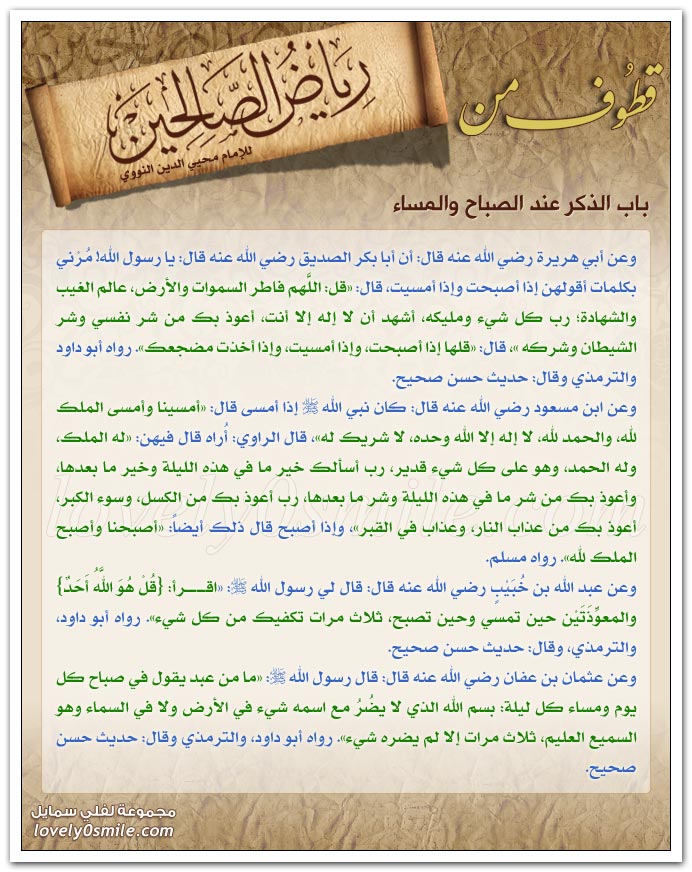 قطوف من
رياض الصالحين
للإمام محيي الدين النووي
باب الذكر عند الصباح والمساء
وعن أبي هريرة رضي الله عنه قال: أن أبا بكر الصديق رضي الله عنه قال: يا رسول الله! مُرني
بكلمات أقولهن إذا أصبحت وإذا أمسيت، قال: «قل: اللَّهم فاطر السموات والأرض، عالم الغيب
والشهادة؛ رب كل شيء ومليكه، أشهد أن لا إله إلا أنت، أعوذ بك من شر نفسي وشر
الشيطان وشركه »، قال: «قلها إذا أصبحت، وإذا أمسيت، وإذا أخذت مضجعك». رواه أبو داود
والترمذي وقال: حديث حسن صحيح.
وعن ابن مسعود رضي الله عنه قال: كان نبي الله ﷺ إذا أمسى قال: «أمسينا وأمسى الملك
لله، والحمد لله، لا إله إلا الله وحده، لا شريك له»، قال الراوي: أُراه قال فيهن: «له الملك،
وله الحمد، وهو على كل شيء قدير، رب أسألك خير ما في هذه الليلة وخير ما بعدها،
وأعوذ بك من شر ما في هذه الليلة وشر ما بعدها، رب أعوذ بك من الكسل، وسوء الكبر،
أعوذ بك من عذاب النار، وعذاب في القبر»، وإذا أصبح قال ذلك أيضاً: «أصبحنا وأصبح
الملك لله». رواه مسلم.
وعن عبد الله بن خُبَيْبٍ رضي الله عنه قال: قال لي رسول الله ﷺ: «اقـــرأ: {قُلْ هُوَ اللَّهُ أَحَدٌ}
والمعوِّذَتَيْن حين تمسي وحين تصبح، ثلاث مرات تكفيك من كل شيء». رواه أبو داود،
والترمذي، وقال: حديث حسن صحيح.
وعن عثمان بن عفان رضي الله عنه قال: قال رسول الله ﷺ: «ما من عبد يقول في صباح كل
يوم ومساء كل ليلة: بسم الله الذي لا يضُرُ مع اسمه شيء في الأرض ولا في السماء وهو
السميع العليم، ثلاث مرات إلا لم يضره شيء». رواه أبو داود، والترمذي وقال: حديث حسن
صحيح.
مجموعة لفلي سمايل
lovely0smile.com
lovely0smile.com